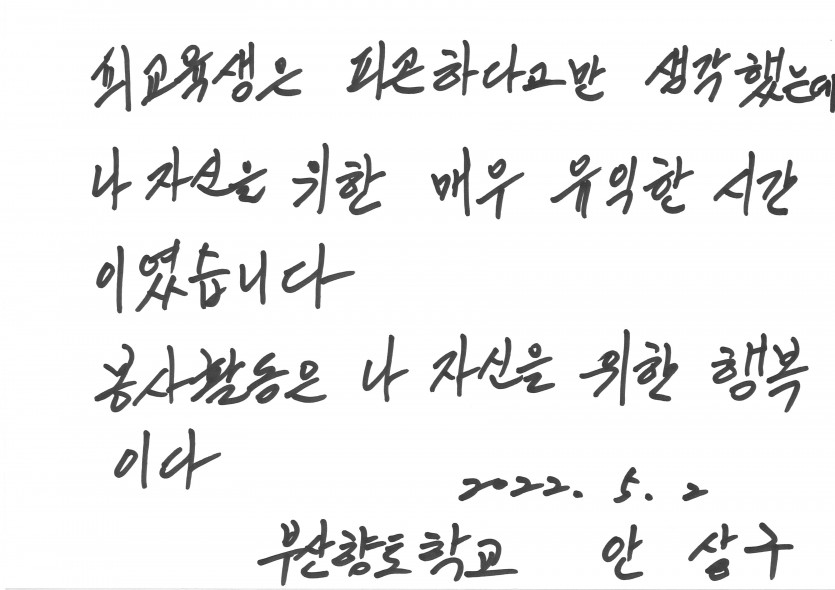 피교육생은 피곤하다고만 생각했는데
나 자신을 위한 매우 유익한 시간
이였습니다
봉사활동은 나 자신을 위한 행복
이다
2022. 5. 2
부산향토학교 안 삼구